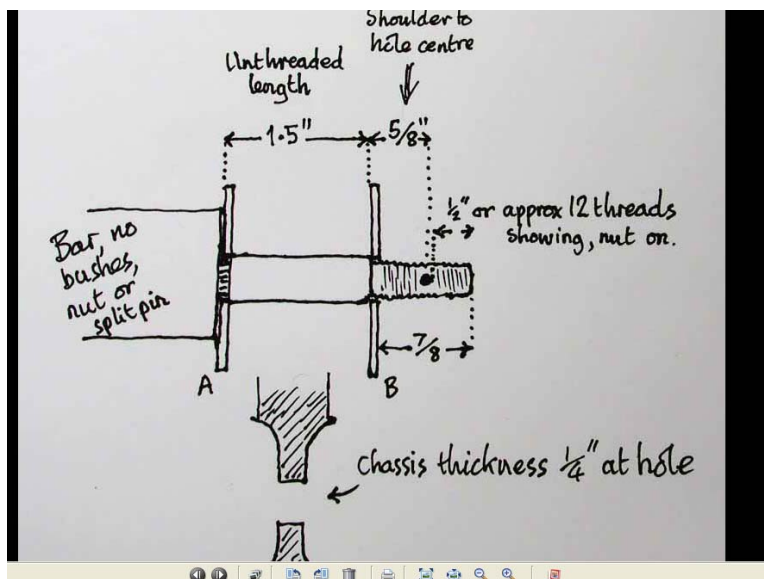 Shoulder to
hole centre
Unthreaded
length
1.5"
5/8"
1/2" or approx 12 threads
showing, nut on.
Bar, no
bushes,
nut or
split pin
7/8
A
B
Chassis thickness 1/4" at hole